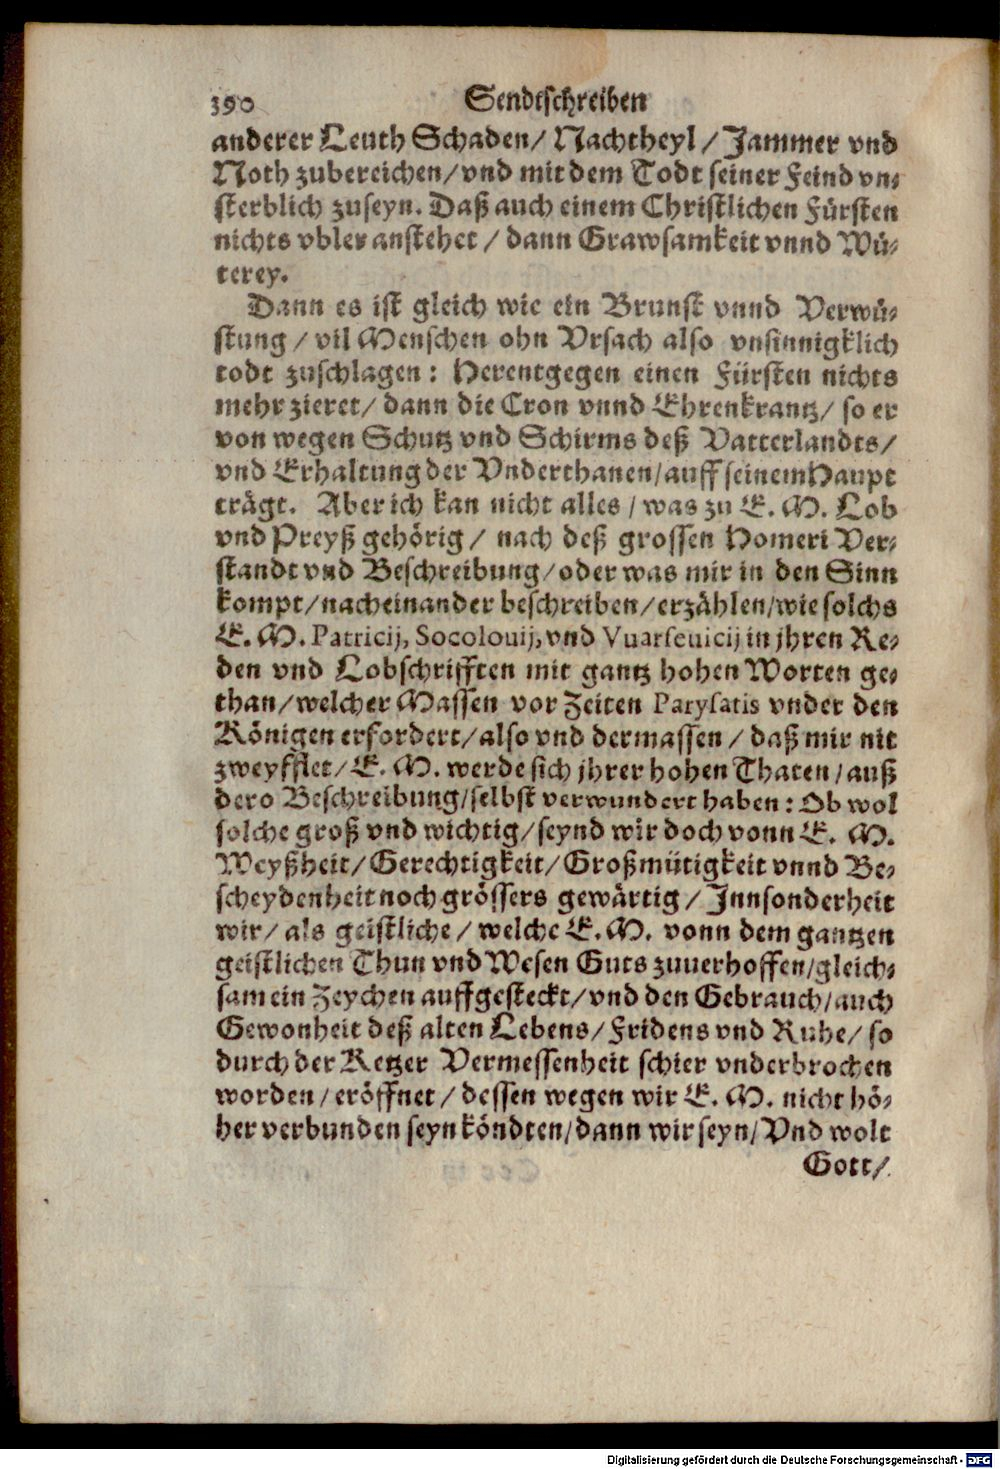 390 Sendtschreiben
anderer Leuth Schaden/ Nachtheyl/ Jammer vnd
Noth zubereichen/ vnd mit dem Todt seiner Feind vn-
sterblich zuseyn. Daß auch einem Christlichen Fürsten
nichts vbler anstehet/ dann Grawsamkeit vnnd Wü-
terey.
Dann es ist gleich wie ein Brunst vnnd Verwü-
stung/ vil Menschen ohn Vrsach also vnsinnigklich
todt zuschlagen: Herentgegen einen Fürsten nichts
mehr zieret/ dann die Cron vnnd Ehrenkrantz/ so er
von wegen Schutz vnd Schirms deß Vatterlandts/
vnd Erhaltung der Vnderthanen/ auff seinem Haupt
trägt. Aber ich kan nicht alles/ was zu E. M. Lob
vnd Preyß gehörig/ nach deß grossen Homeri Ver-
standt vnd Beschreibung/ oder was mir in den Sinn
kompt/ nacheinander beschreiben/ erzählen/ wie solchs
E. M. Patricij, Socolouij, vnd Vuarseuicij in jhren Re-
den vnd Lobschrifften mit gantz hohen Worten ge-
than/ welcher Massen vor Zeiten Parysatis vnder den
Königen erfordert/ also vnd dermassen/ daß mir nit
zweyfflet/ E. M. werde sich jhrer hohen Thaten/ auß
dero Beschreibung/ selbst verwundert haben: Ob wol
solche groß vnd wichtig/ seynd wir doch vonn E. M.
Weyßheit/ Gerechtigkeit/ Großmütigkeit vnnd Be-
scheydenheit noch grössers gewärtig/ Innsonderheit
wir/ als geistliche/ welche E. M. vonn dem gantzen
geistlichen Thun vnd Wesen Guts zuuerhoffen/ gleich-
sam ein Zeychen auffgesteckt/ vnd den Gebrauch/ auch
Gewonheit deß alten Lebens/ Fridens vnd Ruhe/ so
durch der Ketzer Vermessenheit schier vnderbrochen
worden/ eröffnet/ dessen wegen wir E. M. nicht hö-
her verbunden seyn köndten/ dann wir seyn/ Vnd wolt
Gott/
Digitalisierung gefördert durch die Deutsche Forschungsgemeinschaft - DFG